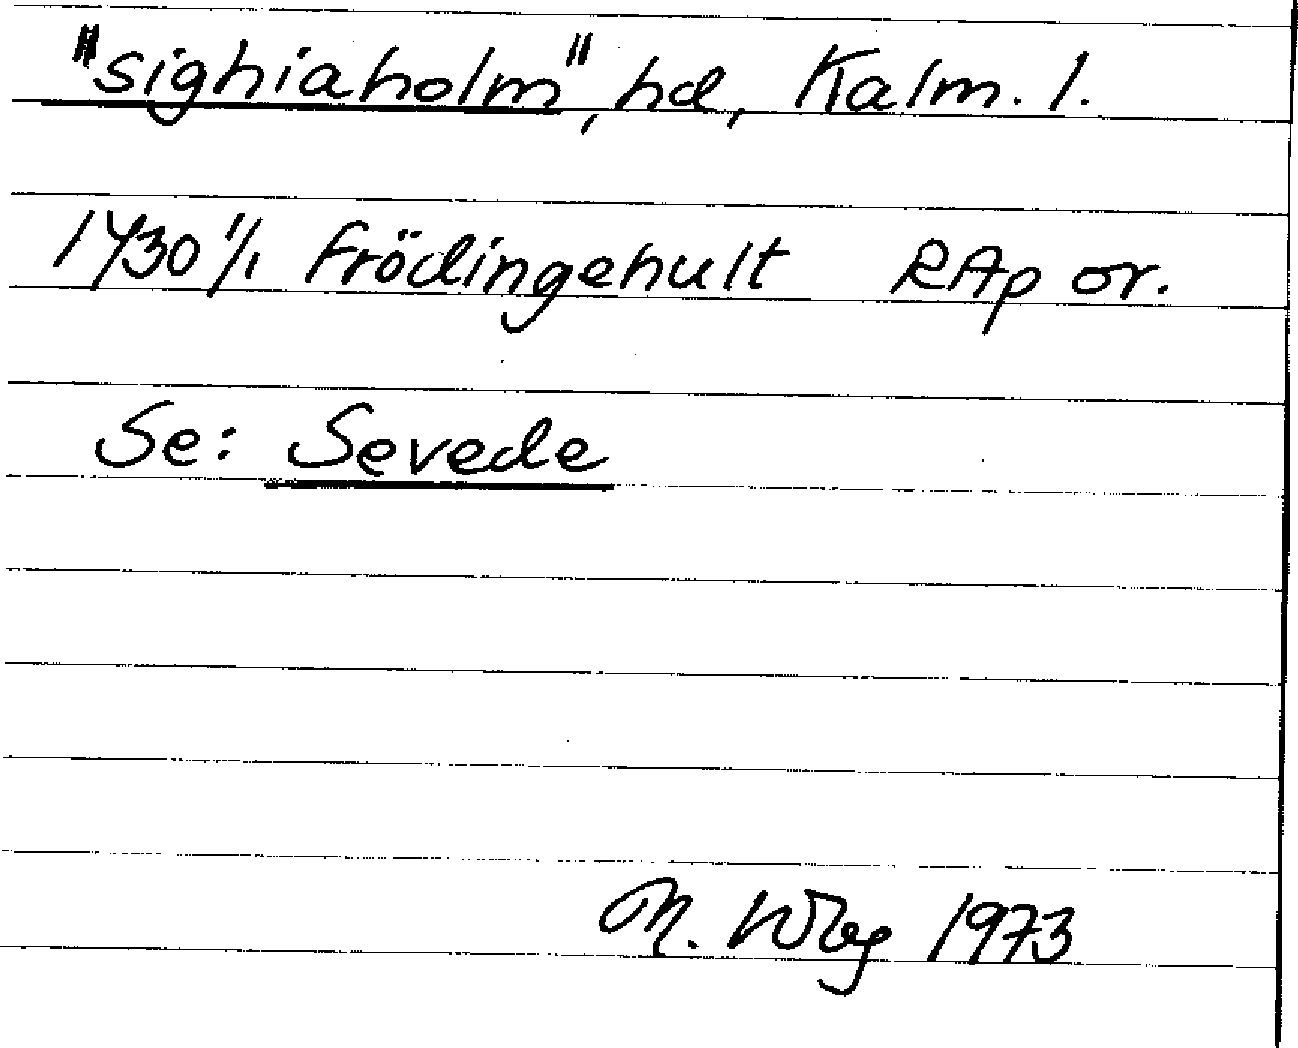 "sighiaholm", hd, Kalm. l.
1430 1/1 Frödingehult RAp or.
Se: Sevede
M. Wbg 1973